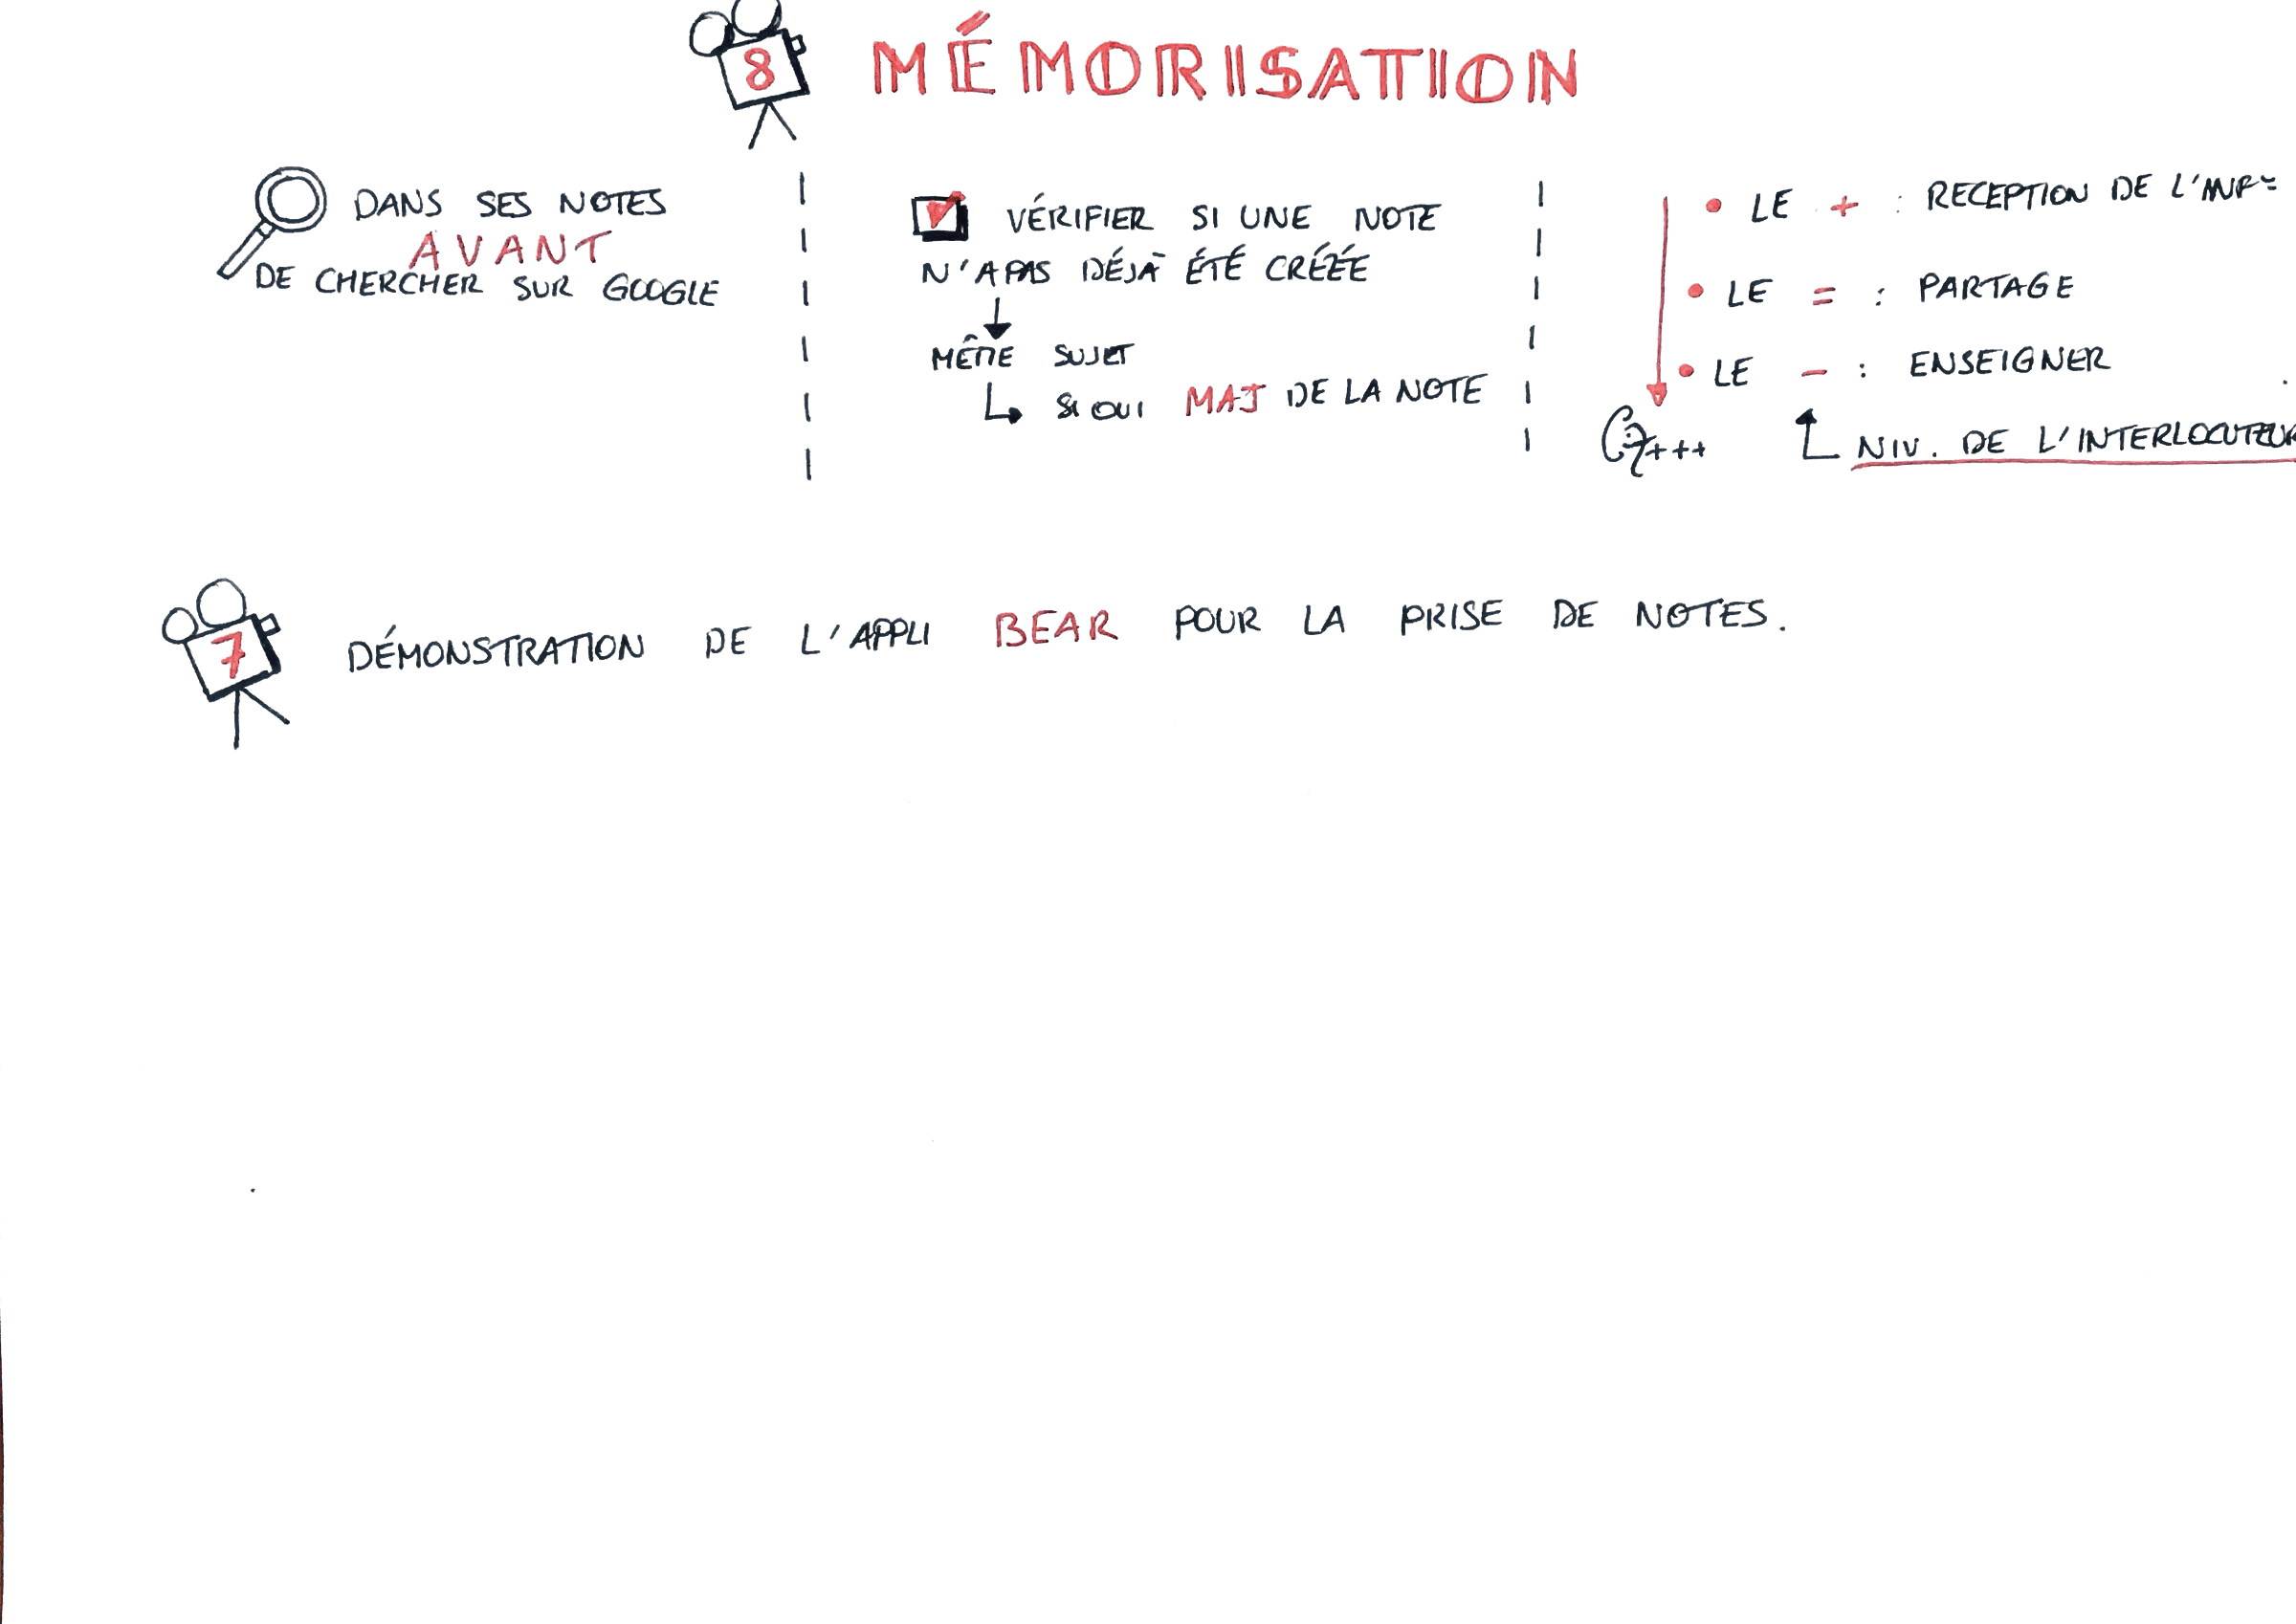 8 MÉMORISATION
DANS SES NOTES
AVANT
DE CHERCHER SUR GOOGLE
VÉRIFIER SI UNE NOTE
N'A PAS DÉJÀ ÉTÉ CRÉÉE
MÊME SUJET
SI OUI MAJ DE LA NOTE
• LE + : RECEPTION DE L'INF°
• LE = : PARTAGE
• LE - : ENSEIGNER
+++
NIV. DE L'INTERLOCUTEUR
7 DÉMONSTRATION DE L'APPLI BEAR POUR LA PRISE DE NOTES.